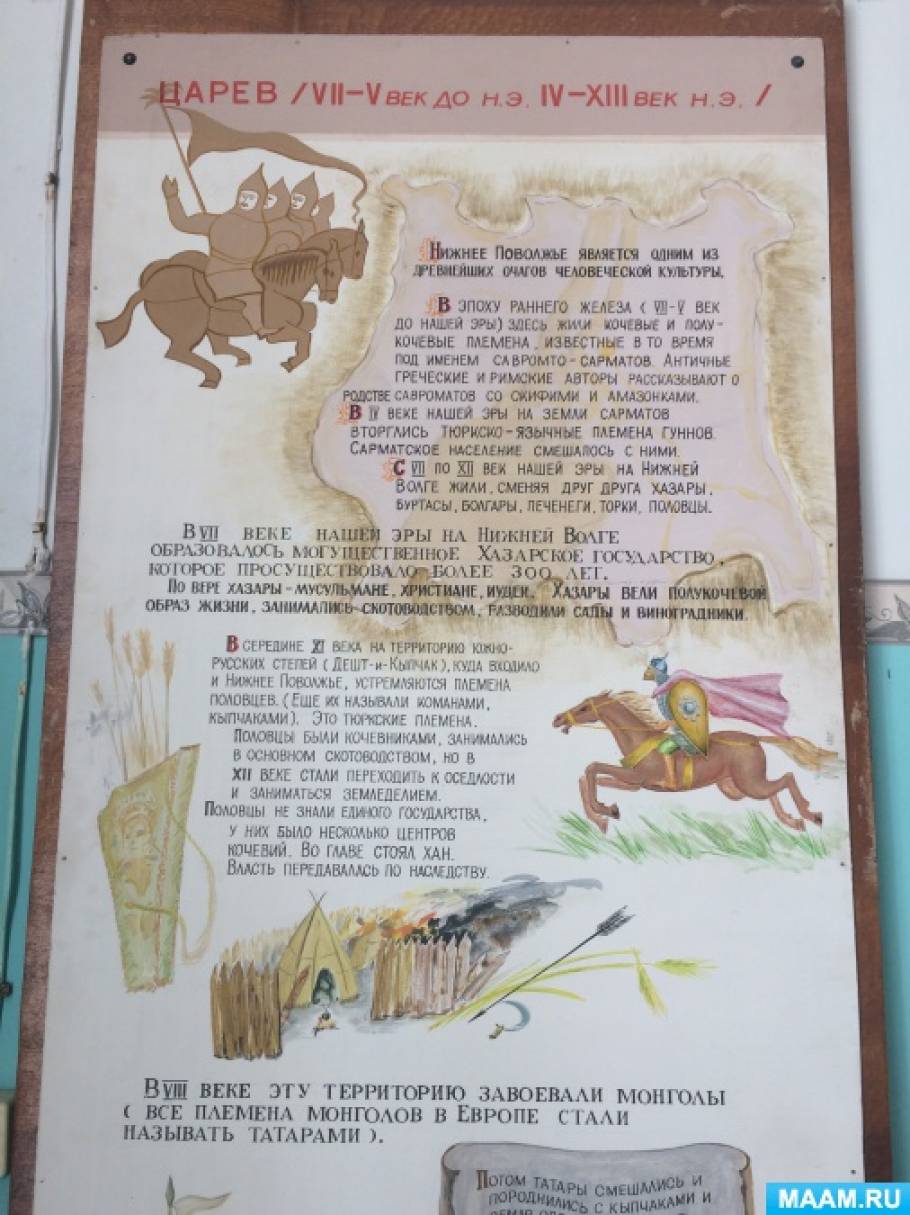 ЦАРЕВ /VII-V ВЕК ДО Н.Э. IV-XIII ВЕК Н.Э. /
НИЖНЕЕ ПОВОЛЖЬЕ ЯВЛЯЕТСЯ ОДНИМ ИЗ
ДРЕВНЕЙШИХ ОЧАГОВ ЧЕЛОВЕЧЕСКОЙ КУЛЬТУРЫ.
В ЭПОХУ РАННЕГО ЖЕЛЕЗА ( VII-V ВЕК
ДО НАШЕЙ ЭРЫ) ЗДЕСЬ ЖИЛИ КОЧЕВЫЕ И ПОЛУ-
КОЧЕВЫЕ ПЛЕМЕНА, ИЗВЕСТНЫЕ В ТО ВРЕМЯ
ПОД ИМЕНЕМ САВРОМТО-САРМАТОВ. АНТИЧНЫЕ
ГРЕЧЕСКИЕ И РИМСКИЕ АВТОРЫ РАССКАЗЫВАЮТ О
РОДСТВЕ САВРОМАТОВ СО СКИФИМИ И АМАЗОНКАМИ.
В IV ВЕКЕ НАШЕЙ ЭРЫ НА ЗЕМЛИ САРМАТОВ
ВТОРГЛИСЬ ТЮРКСКО-ЯЗЫЧНЫЕ ПЛЕМЕНА ГУННОВ.
САРМАТСКОЕ НАСЕЛЕНИЕ СМЕШАЛОСЬ С НИМИ.
С VII ПО XII ВЕК НАШЕЙ ЭРЫ НА НИЖНЕЙ
ВОЛГЕ ЖИЛИ, СМЕНЯЯ ДРУГ ДРУГА ХАЗАРЫ,
БУРТАСЫ, БОЛГАРЫ, ПЕЧЕНЕГИ, ТОРКИ, ПОЛОВЦЫ.
В VII ВЕКЕ НАШЕЙ ЭРЫ НА НИЖНЕЙ ВОЛГЕ
ОБРАЗОВАЛОСЬ МОГУЩЕСТВЕННОЕ ХАЗАРСКОЕ ГОСУДАРСТВО,
КОТОРОЕ ПРОСУЩЕСТВОВАЛО БОЛЕЕ 300 ЛЕТ.
ПО ВЕРЕ ХАЗАРЫ - МУСУЛЬМАНЕ, ХРИСТИАНЕ, ИУДЕИ. ХАЗАРЫ ВЕЛИ ПОЛУКОЧЕВОЙ
ОБРАЗ ЖИЗНИ, ЗАНИМАЛИСЬ СКОТОВОДСТВОМ, РАЗВОДИЛИ САДЫ И ВИНОГРАДНИКИ.
В СЕРЕДИНЕ XI ВЕКА НА ТЕРРИТОРИЮ ЮЖНО-
РУССКИХ СТЕПЕЙ ( ДЕШТ-И-КЫПЧАК), КУДА ВХОДИЛО
И НИЖНЕЕ ПОВОЛЖЬЕ, УСТРЕМЛЯЮТСЯ ПЛЕМЕНА
ПОЛОВЦЕВ. (ЕЩЕ ИХ НАЗЫВАЛИ КОМАНАМИ,
КЫПЧАКАМИ). ЭТО ТЮРКСКИЕ ПЛЕМЕНА.
ПОЛОВЦЫ БЫЛИ КОЧЕВНИКАМИ, ЗАНИМАЛИСЬ
В ОСНОВНОМ СКОТОВОДСТВОМ, НО В
XII ВЕКЕ СТАЛИ ПЕРЕХОДИТЬ К ОСЕДЛОСТИ
И ЗАНИМАТЬСЯ ЗЕМЛЕДЕЛИЕМ.
ПОЛОВЦЫ НЕ ЗНАЛИ ЕДИНОГО ГОСУДАРСТВА,
У НИХ БЫЛО НЕСКОЛЬКО ЦЕНТРОВ
КОЧЕВИЙ. ВО ГЛАВЕ СТОЯЛ ХАН.
ВЛАСТЬ ПЕРЕДАВАЛАСЬ ПО НАСЛЕДСТВУ.
В VIII ВЕКЕ ЭТУ ТЕРРИТОРИЮ ЗАВОЕВАЛИ МОНГОЛЫ
( ВСЕ ПЛЕМЕНА МОНГОЛОВ В ЕВРОПЕ СТАЛИ
НАЗЫВАТЬ ТАТАРАМИ ).
ПОТОМ ТАТАРЫ СМЕШАЛИСЬ И
ПОРОДНИЛИСЬ С КЫПЧАКАМИ И
MAAM.RU